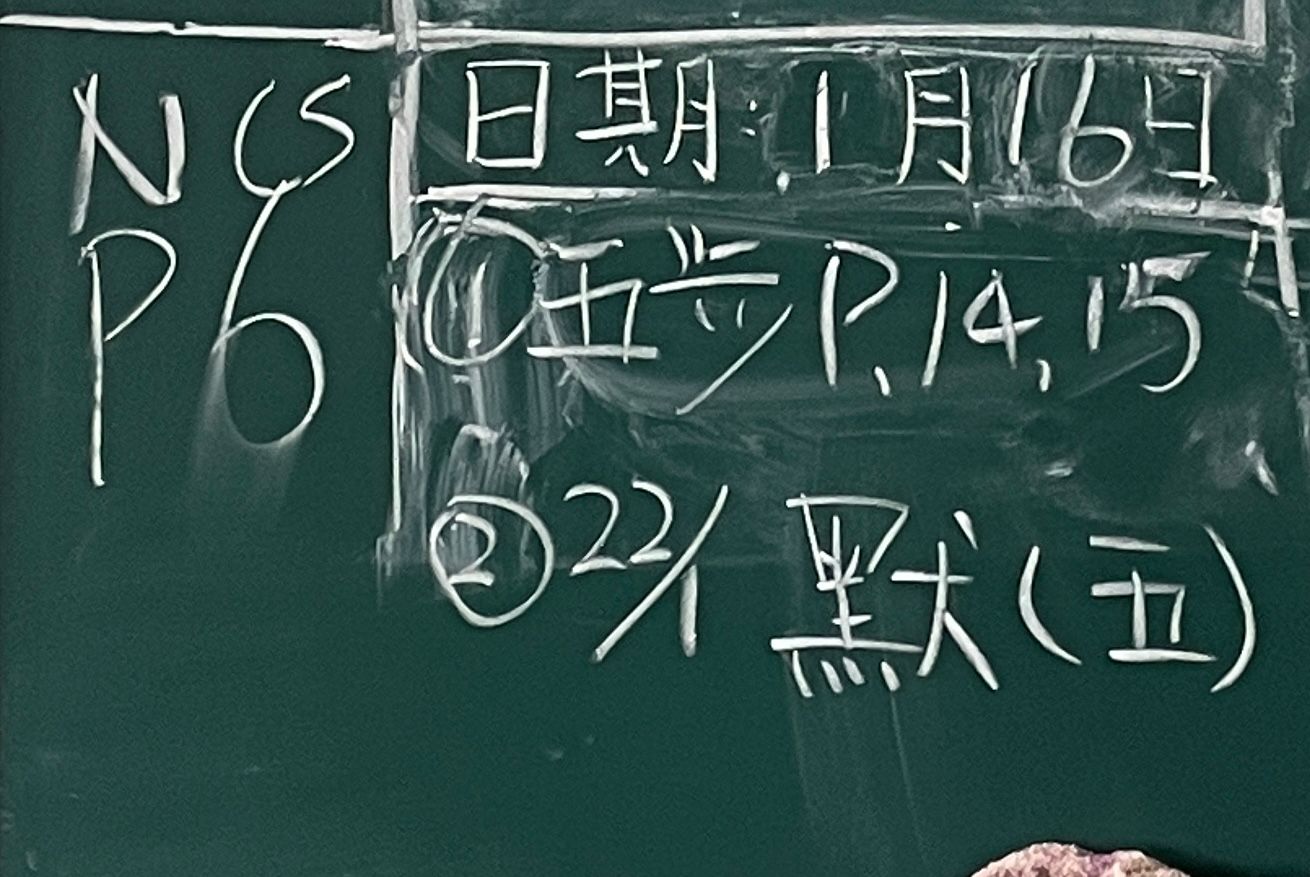 NCS
P6
日期:1月16日
① 五 P.14,15
② 22/1 默(五)